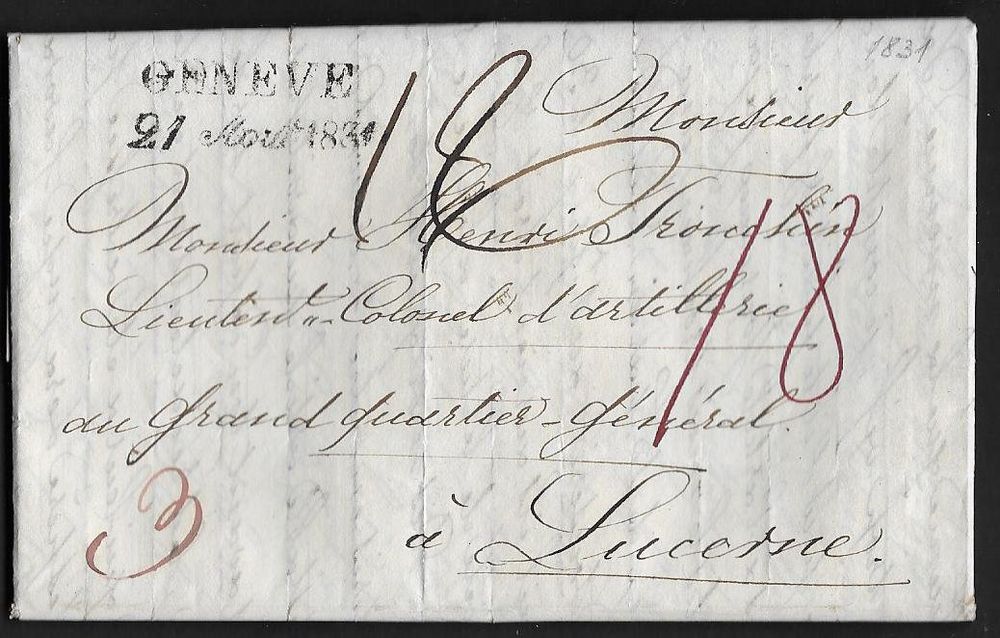 1831
GENEVE
21 Août 1831
Monsieur
Monsieur Henri Tronchin
Lieuten.t Colonel d'artillerie
au grand quartier-général.
à Lucerne.
18
3